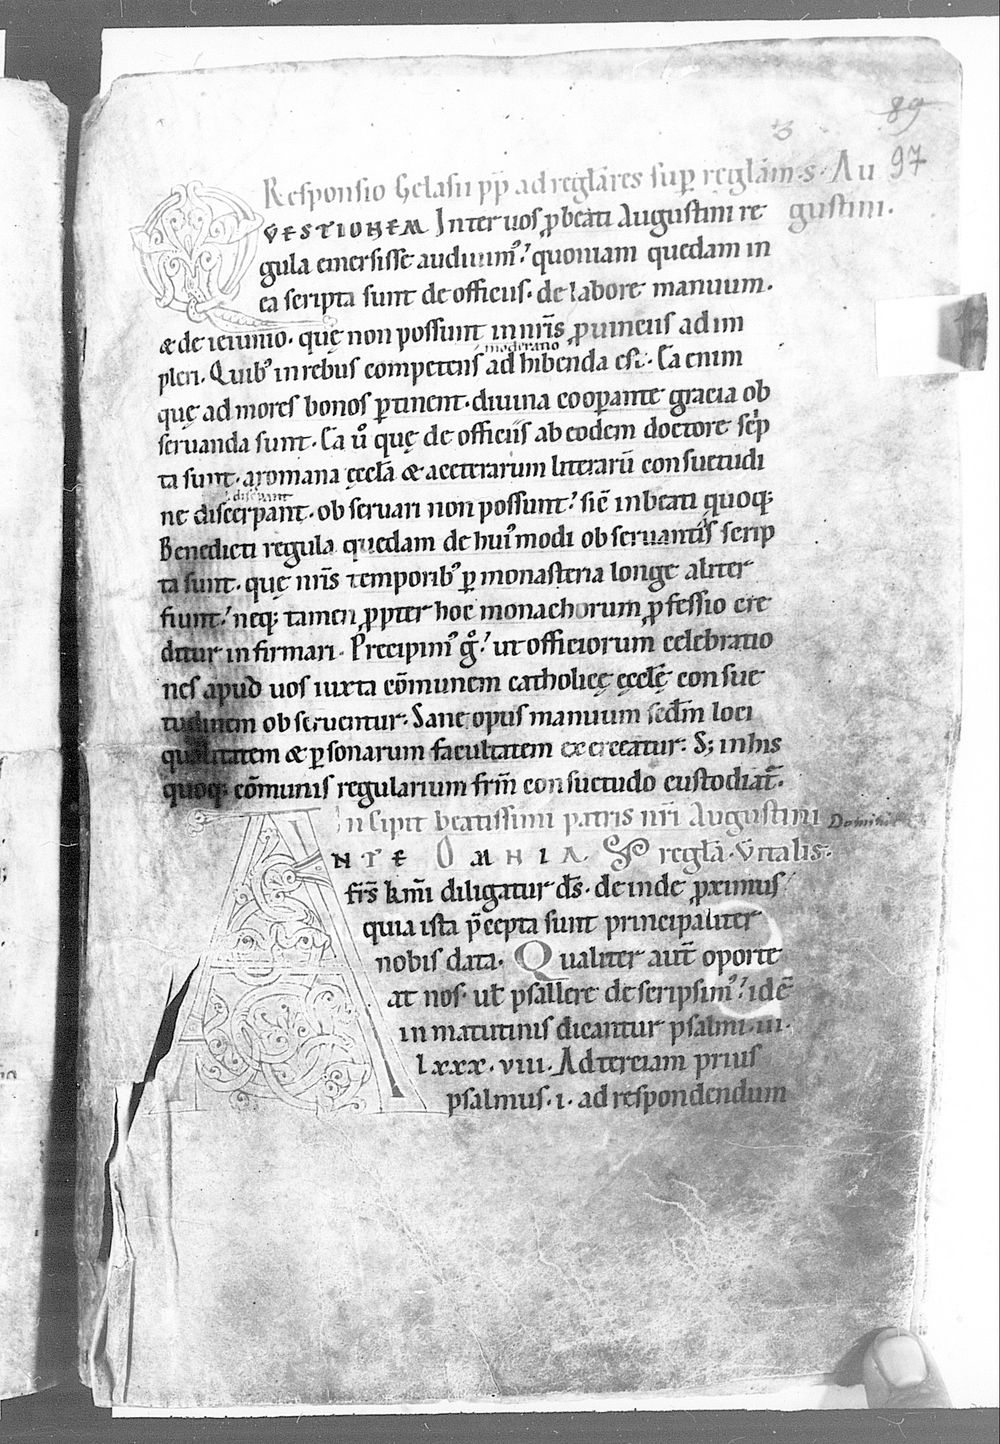 89
97
Responsio Gelasii pp̄ ad reglāres sup̱ reglām · S · Au
gustini.
QVESTIONEM Inter uos ꝓ beati Augustini re
gula emersisse audiuimꝰ; quoniam quedam in
ea scripta sunt de officiis · de labore manuum ·
& de ieiunio · quę non possunt in nr̄is ꝓuinciis adim
moderatio
pleri · Quibꝰ in rebus competens adhibenda est · Ea enim
quę ad mores bonos ꝑtinent · diuina cooꝑante gracia ob
seruanda sunt · Ea ū quę de officiis ab eodem doctore sc̄p
ta sunt · a romana ęcclā & a ceterarum literarū consuetudi
discrepant
ne discerpant · obseruari non possunt; sic̄ in beati quoq;
Benedicti regula quedam de huiꝰmodi obseruantiis scrip
ta sunt · quę nr̄is temporibꝰ ꝑ monasteria longe aliter
fiunt; neq; tamen ꝓpter hoc monachorum ꝓfessio cre
ditur infirmari · Precipimꝰ g̊; ut officiorum celebratio
nes apud uos iuxta cōmunem catholicę ęcclę̄ consue
tudinem obseruentur · Sane opus manuum sedm̄ loci
qualitatem & ꝑsonarum facultatem exerceatur · S; in his
quoq; cōmunis regularium frm̄ consuetudo custodiat̄ ·
Incipit beatissimi patris nr̄i Augustini
ANTE OMNIA · reglā · Vitalis ·
fr̄s km̄i diligatur ds̄ · deinde ꝓximus
quia ista p̄cepta sunt principaliter
nobis data · Qualiter aut̄ oporte
at nos ut̄ psallere descripsimꝰ; idē
in matutinis dicantur psalmi · iii ·
lxxx · viii · Ad terciam prius
psalmus · i · ad respondendum